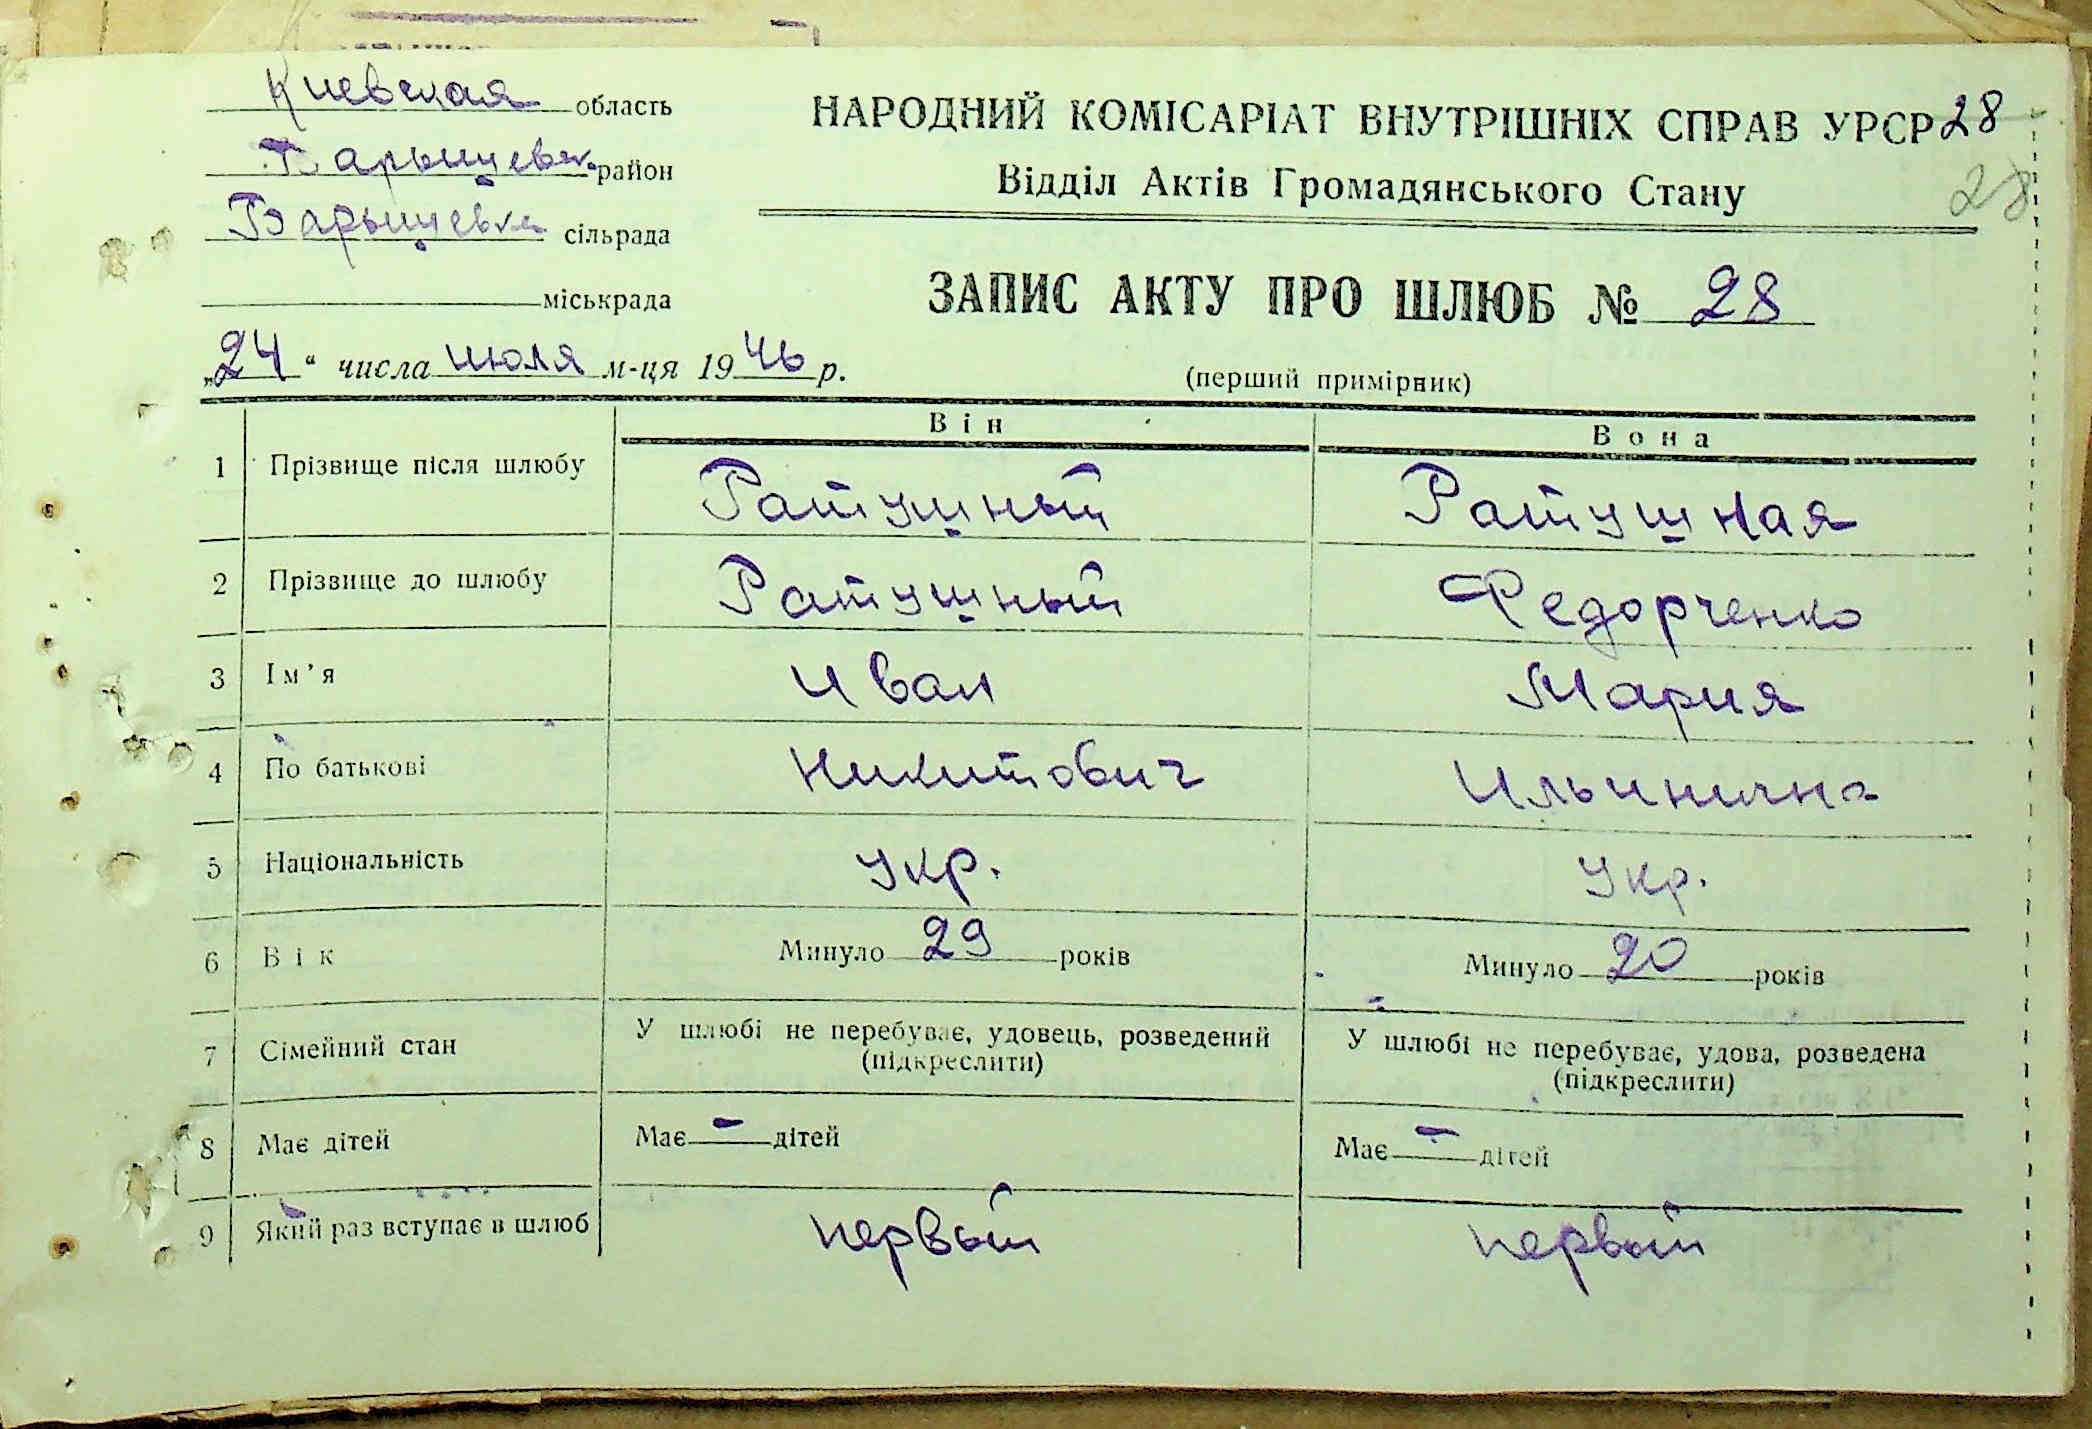 Киевская область
Барышевк. район
Барышевка сільрада
міськрада
„24“ числа июля м-ця 1946 р.
НАРОДНИЙ КОМІСАРІАТ ВНУТРІШНІХ СПРАВ УРСР 28
28
Відділ Актів Громадянського Стану
ЗАПИС АКТУ ПРО ШЛЮБ № 28
(перший примірник)
Він Вона
1 Прізвище після шлюбу Ратушный Ратушная
2 Прізвище до шлюбу Ратушный Федорченко
3 Ім'я Иван Мария
4 По батькові Никитович Ильинична
5 Національність Укр. Укр.
6 Вік Минуло 29 років Минуло 20 років
7 Сімейний стан У шлюбі не перебуває, удовець, розведений У шлюбі не перебуває, удова, розведена
(підкреслити) (підкреслити)
8 Має дітей Має - дітей Має - дітей
9 Який раз вступає в шлюб первый первый